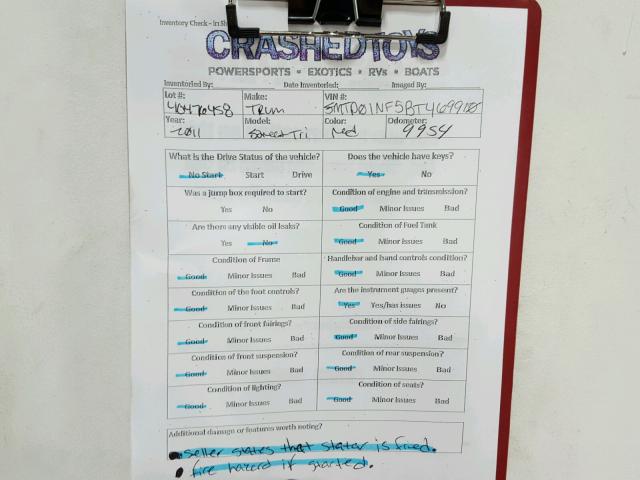 Inventory Check - In Sh
CRASHEDTOYS
POWERSPORTS • EXOTICS • RVs • BOATS
Inventoried By: Date Inventoried: Imaged By:
Lot #: Make: VIN #:
40476458 Trium SMTD01NF5BT469915
Year: Model: Color: Odometer:
2011 Street Tri Red 9954
What is the Drive Status of the vehicle? Does the vehicle have keys?
No Start Start Drive Yes No
Was a jump box required to start? Condition of engine and transmission?
Yes No Good Minor Issues Bad
Are there any visible oil leaks? Condition of Fuel Tank
Yes No Good Minor Issues Bad
Condition of Frame Handlebar and hand controls condition?
Good Minor Issues Bad Good Minor Issues Bad
Condition of the foot controls? Are the instrument guages present?
Good Minor Issues Bad Yes Yes/has issues No
Condition of front fairings? Condition of side fairings?
Good Minor Issues Bad Good Minor Issues Bad
Condition of front suspension? Condition of rear suspension?
Good Minor Issues Bad Good Minor Issues Bad
Condition of lighting? Condition of seats?
Good Minor Issues Bad Good Minor Issues Bad
Additional damage or features worth noting?
• seller states that stator is fried.
• fire hazard if started.